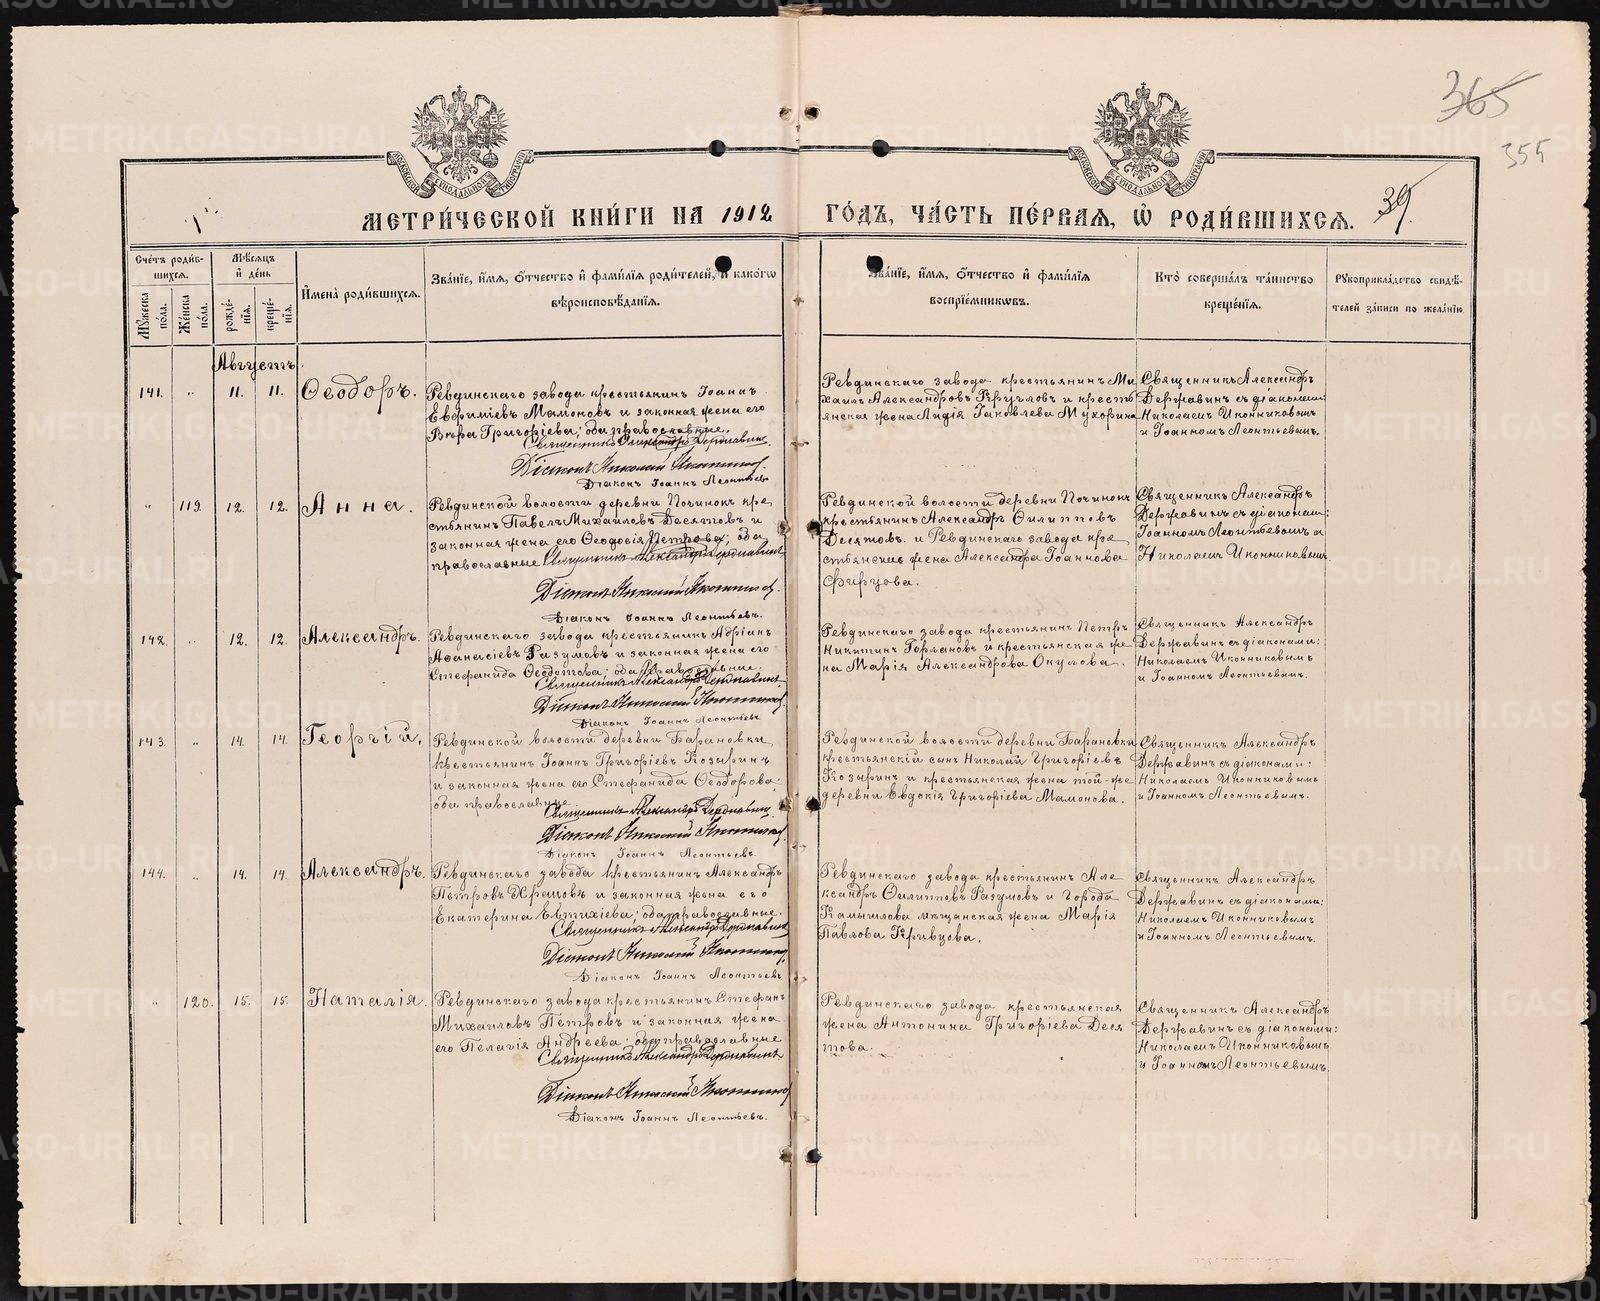 365
355
МОСКОВСКОЙ СѴНОДАЛЬНОЙ ТИПОГРАФІИ
МОСКОВСКОЙ СѴНОДАЛЬНОЙ ТИПОГРАФІИ
МЕТРИ́ЧЕСКОЙ КНИ́ГИ НА 1912 ГО́ДЪ, ЧА́СТЬ ПЕ́РВАЯ, Ѡ҆ РОДИ́ВШИХСЯ.
39.
Сче́тъ роди́в-
шихся.
Мѣ́сяцъ
и҆ де́нь
Му́жеска
по́ла.
Же́нска
по́ла.
рожде́-
нїѧ.
креще́-
нїѧ.
И҆мена̀ роди́вшихся.
Зва́нїе, и҆́мя, о҆́тчество и҆ фами́лїя роди́телей, и҆ како́гѡ
вѣроисповѣ́данїя.
Зва́нїе, и҆́мя, о҆́тчество и҆ фами́лїя
воспрїе́мникѡвъ.
Кто̀ соверша́лъ та́инство
креще́нїя.
Рукоприкла́дство свидѣ́-
телей за́писи по жела́нїю.
Августъ.
141. „ 11. 11. Ѳеодоръ.
Ревдинскаго завода крестьянин Іоаннъ
Евфиміевъ Мамоновъ и законная жена его
Вѣра Григоріева; оба православные.
Священникъ Александръ Державинъ
Діаконъ Николай Иконниковъ
Діаконъ Іоаннъ Леонтьевъ
Ревдинскаго завода крестьянин Ми
хаилъ Александровъ Кругловъ и кресть
янская жена Лидія Іаковлева Мухорина
Священникъ Александръ
Державинъ съ діаконами:
Николаемъ Иконниковымъ
и Іоанномъ Леонтьевымъ.
„ 119. 12. 12. Анна.
Ревдинской волости деревни Починокъ кре
стьянинъ Павелъ Михаиловъ Десятовъ и
законная жена его Ѳеодосія Петрова; оба
православные Священникъ Александръ Державинъ
Діаконъ Николай Иконниковъ
Діаконъ Іоаннъ Леонтьевъ.
Ревдинской волости деревни Починокъ
крестьянинъ Александръ Филипповъ
Десятовъ. и Ревдинскаго завода кре
стьянская жена Александра Іоаннова
Фирцова.
Священникъ Александръ
Державинъ съ діаконами:
Іоанномъ Леонтьевымъ и
Николаемъ Иконниковымъ
142. „ 12. 12. Александръ.
Ревдинскаго завода крестьянинъ Адріанъ
Аѳанасіевъ Разумовъ и законная жена его
Стефанида Ѳедотова; оба православные.
Священникъ Александръ Державинъ
Діаконъ Николай Иконниковъ
Діаконъ Іоаннъ Леонтьевъ
Ревдинскаго завода крестьянинъ Петръ
Никитинъ Горлановъ и крестьянская же
на Марія Александрова
Священникъ Александръ
Державинъ съ діаконами:
Николаемъ Иконниковымъ
и Іоанномъ Леонтьевымъ.
143. „ 14. 14. Георгій.
Ревдинской волости деревни Барановки
крестьянинъ Іоаннъ Григоріевъ Козыринъ
и законная жена его Стефанида Ѳеодорова;
оба православные
Священникъ Александръ Державинъ
Діаконъ Николай Иконниковъ
Діаконъ Іоаннъ Леонтьевъ.
Ревдинской волости деревни Барановки
крестьянскій сынъ Николай Григоріевъ
Козыринъ и крестьянская жена той-же
деревни Евдокія Григоріева Мамонова.
Священникъ Александръ
Державинъ съ діаконами:
Николаемъ Иконниковымъ
и Іоанномъ Леонтьевымъ.
144. „ 14. 14. Александръ.
Ревдинскаго завода крестьянинъ Александръ
Петровъ Храмовъ и законная жена его
Екатерина Евтихіева; оба православные.
Священникъ Александръ Державинъ
Діаконъ Николай Иконниковъ
Діаконъ Іоаннъ Леонтьевъ
Ревдинскаго завода крестьянинъ Але
ксандръ Филипповъ Разумовъ и города
Камышлова мѣщанская жена Марія
Павлова Кривцова.
Священникъ Александръ
Державинъ съ діаконами:
Николаемъ Иконниковымъ
и Іоанномъ Леонтьевымъ.
„ 120. 15. 15. Наталія.
Ревдинскаго завода крестьянинъ Стефанъ
Михаиловъ Петровъ и законная жена
его Пелагія Андреева; оба православные
Священникъ Александръ Державинъ
Діаконъ Николай Иконниковъ
Діаконъ Іоаннъ Леонтьевъ.
Ревдинскаго завода крестьянская
жена Антонина Григоріева Деся
това.
Священникъ Александръ
Державинъ съ діаконами:
Николаемъ Иконниковымъ
и Іоанномъ Леонтьевымъ.
METRIKI.GASO-URAL.RU